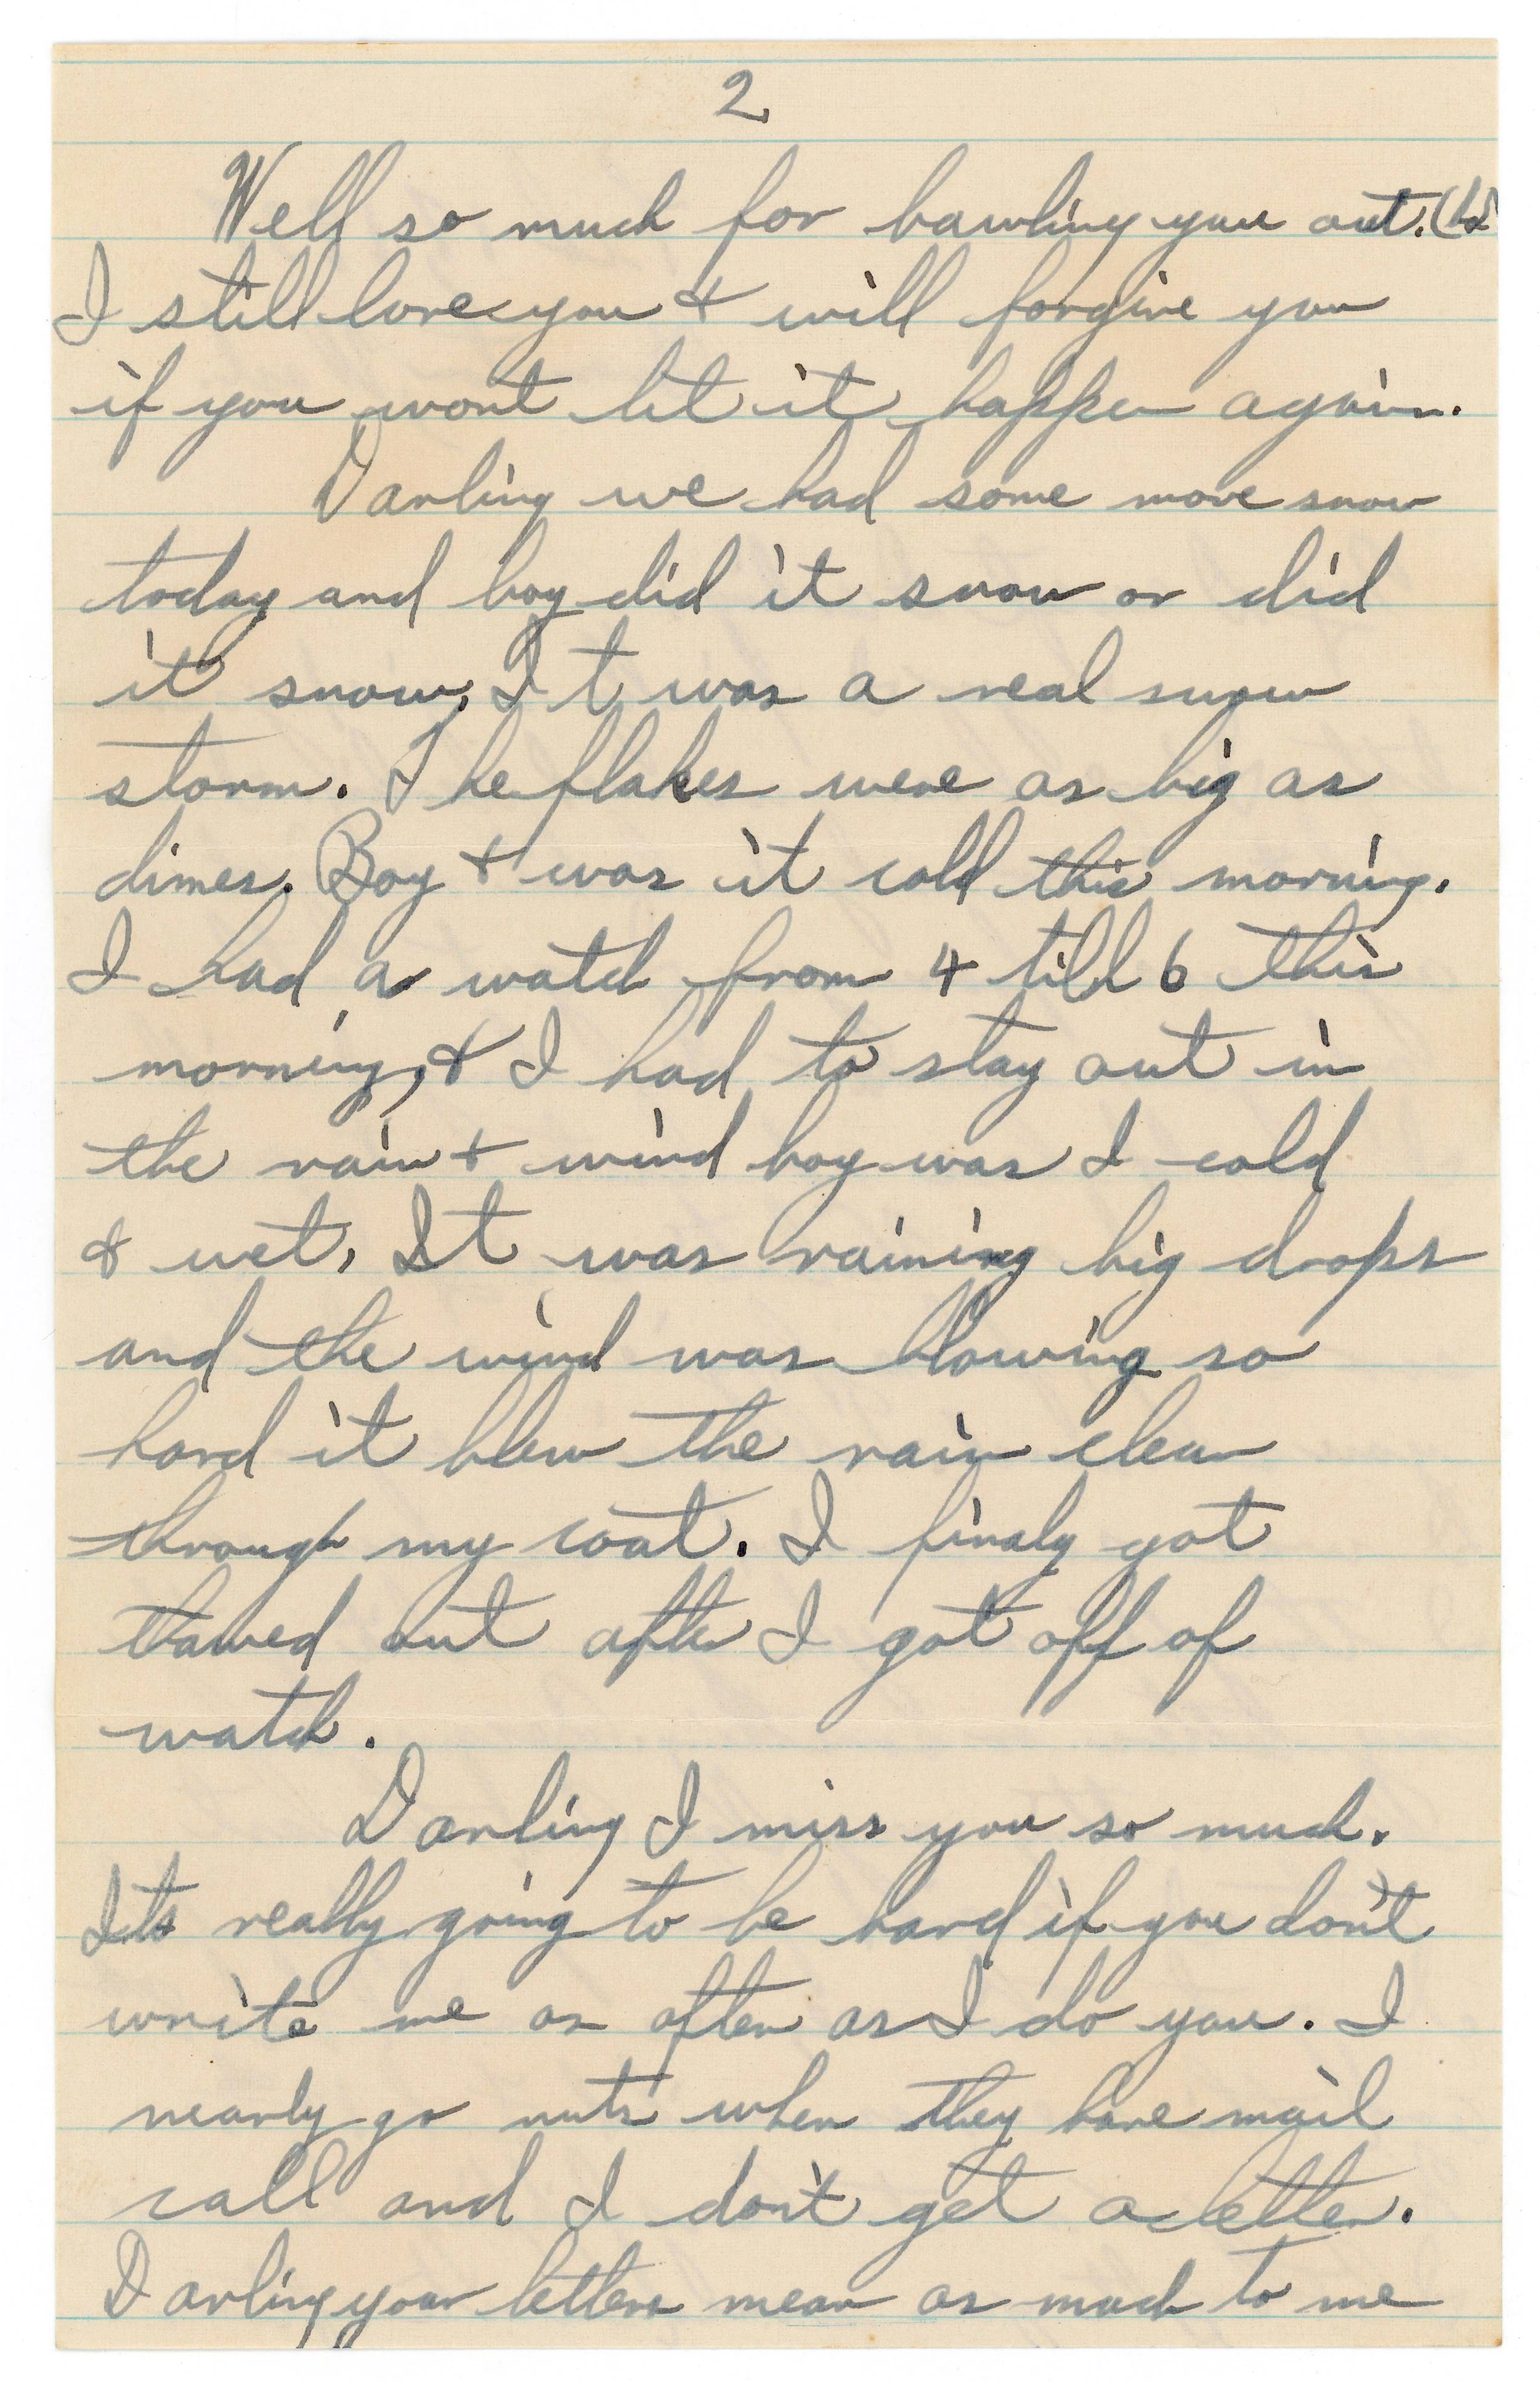 2
Well so much for bawling you out. (ha)
I still love you & will forgive you
if you wont let it happen again.
Darling we had some more snow
today and boy did it snow or did
it snow, It was a real snow
storm. The flakes were as big as
dimes. Boy & was it cold this morning.
I had a watch from 4 till 6 this
morning, & I had to stay out in
the rain & wind boy was I cold
& wet, It was raining big drops
and the wind was blowing so
hard it blew the rain clear
through my coat. I finaly got
thawed out after I got off of
watch.
Darling I miss you so much.
Its really going to be hard if you don't
write me as often as I do you. I
nearly go nuts when they have mail
call and I don't get a letter.
Darling your letters mean as much to me